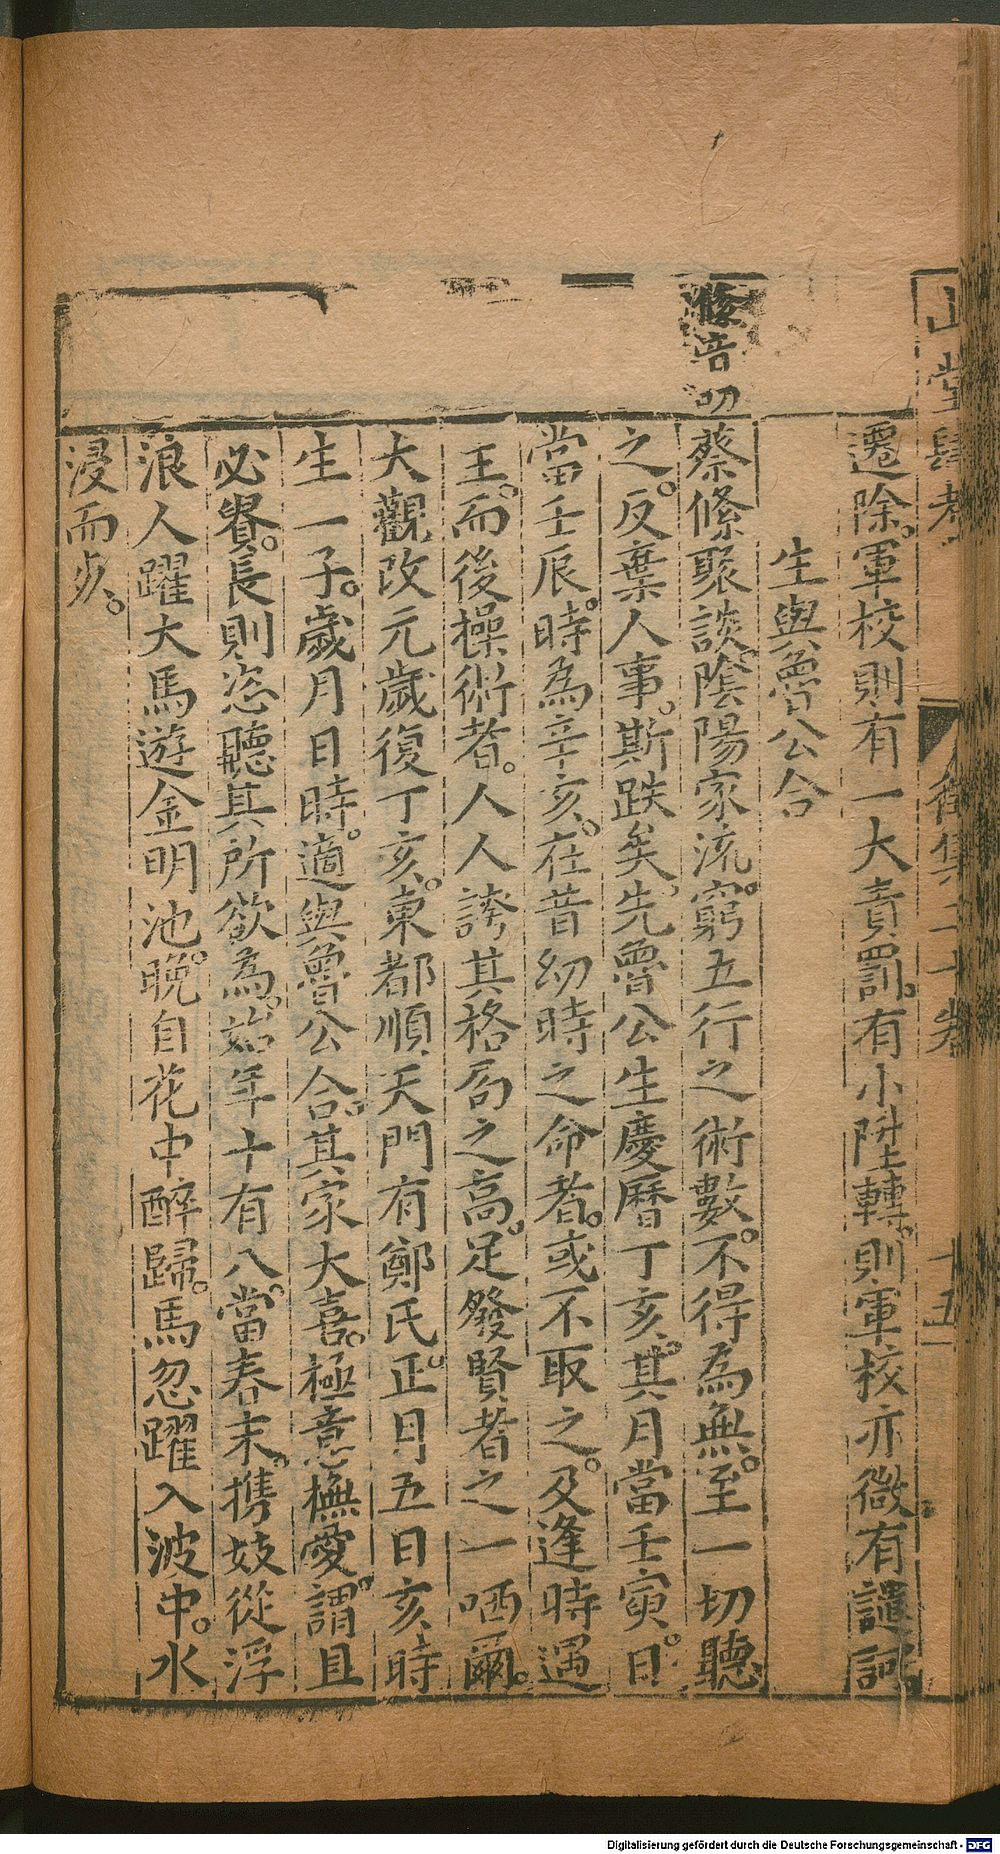 山堂肆考
徵集二十卷
十五
遷除。軍校則有一大責罰。有小陞轉。則軍校亦微有譴訶
生與魯公合
絛音叨
蔡絛聚談。陰陽家流。窮五行之術數。不得為無。至一切聽
之。反棄人事。斯跌矣。先魯公生慶曆丁亥。其月當壬寅。日
當壬辰。時為辛亥。在昔幼時之命者。或不取之。及逢時遇
主。而後操術者。人人誇其格局之高。足發賢者之一哂爾。
大觀改元歲復丁亥。東都順天門有鄭氏。正月五日亥時
生一子。歲月日時。適與魯公合。其家大喜。極意撫愛。謂且
必貴。長則恣聽其所欲為。始年十有八。當春末。携妓從浮
浪人躍大馬遊金明池。晚自花中醉歸。馬忽躍入波中。水
浸而死。
Digitalisierung gefördert durch die Deutsche Forschungsgemeinschaft - DFG